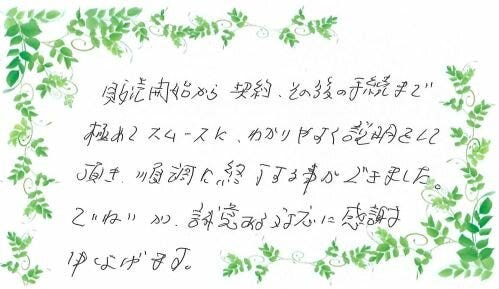 販売開始から契約、その後の手続まで
極めてスムースに、わかりやすく説明をして
頂き、順調に終了する事ができました。
ていねいかつ、誠意ある対応に感謝
申し上げます。